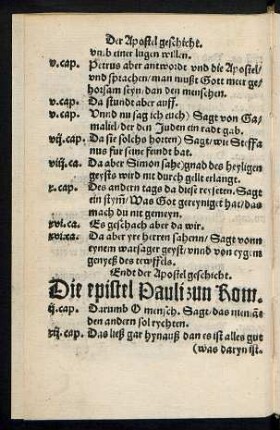 Der Apostel geschicht.
vmb einer lugen willen.
v. cap. Petrus aber antwordt vnd die Apostel/
vnd sprachen/ man mußt Gott meer ge/
horsam seyn/ dan den menschen.
v. cap. Da stundt aber auff.
v. cap. Vnnd nu sag ich euch) Sagt von Ga/
maliel/ der den Juden ein radt gab.
vij. cap. Da sie solchs horten) Sagt/ wie Steffa
nus für seine feindt bat.
viij. ca. Da aber Simon sahe)gnad des heyligen
geysts wird nit durch gellt erlangt.
x. cap. Des andern tags da diese reyseten. Sagt
ein stym/ Was Got gereyniget hat/ das
mach du nit gemeyn.
xvi. ca. Es geschach aber da wir.
xvi. ca. Da aber yre herren sahenn/ Sagt vonn
eynem warsager geyst/ vnnd von eygem
genyeß des tewffels.
Endt der Apostel geschicht.
Die epistel Pauli zun Rom.
ij. cap. Darumb O mensch. Sagt/ das niemāt
den andern sol rychten.
xij. cap. Das laß gar hynauß dan es ist alles gut
(was daryn ist.